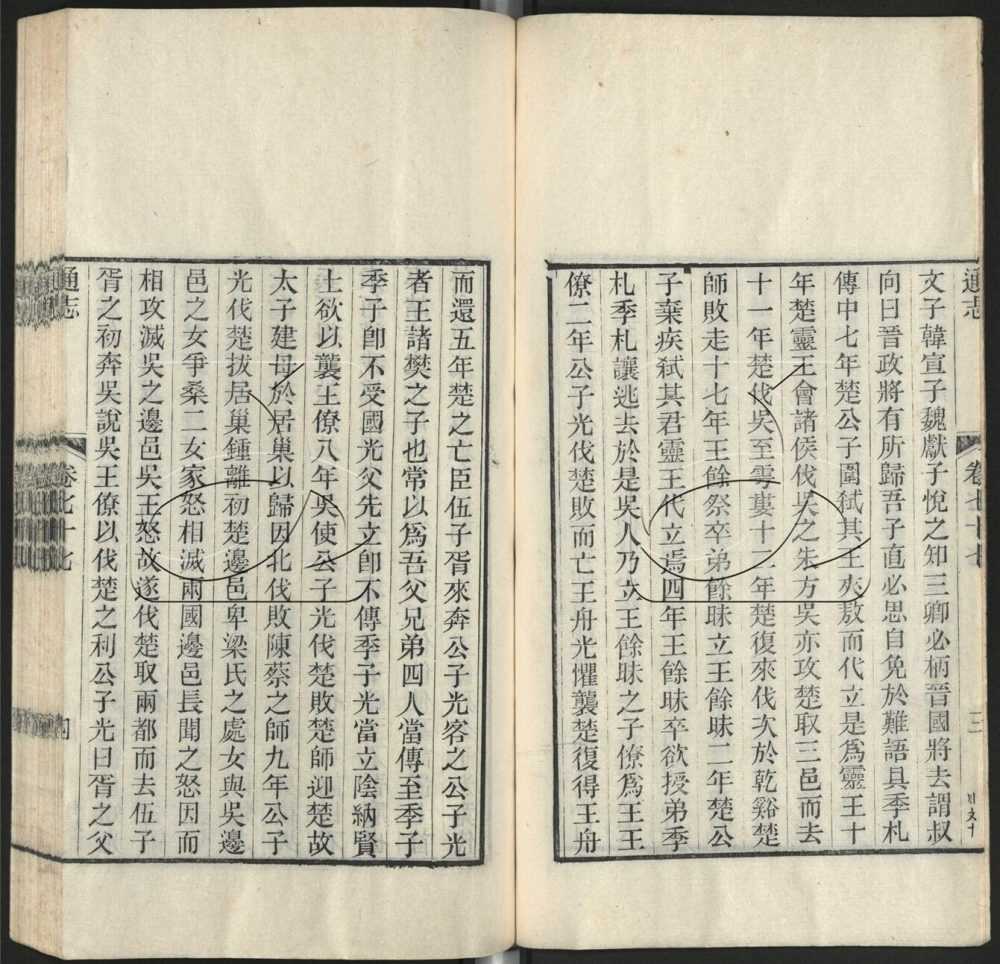 通志
卷七十七
三
文子韓宣子魏獻子悅之知三卿必柄晉國將去謂叔
向曰晉政將有所歸吾子直必思自免於難語具季札
傳中七年楚公子圍弑其王夾敖而代立是為靈王十
年楚靈王會諸侯伐吳之朱方吳亦攻楚取三邑而去
十一年楚伐吳至雩婁十二年楚復來伐次於乾谿楚
師敗走十七年王餘祭卒弟餘昧立王餘昧二年楚公
子棄疾弑其君靈王代立焉四年王餘昧卒欲授弟季
札季札讓逃去於是吳人乃立王餘昧之子僚爲王王
僚二年公子光伐楚敗而亡王舟光懼襲楚復得王舟
而還五年楚之亡臣伍子胥來奔公子光客之公子光
者王諸樊之子也常以爲吾父兄弟四人當傳至季子
季子卽不受國光父先立卽不傳季子光當立陰納賢
士欲以襲王僚八年吳使公子光伐楚敗楚師迎楚故
太子建母於居巢以歸因北伐敗陳蔡之師九年公子
光伐楚拔居巢鍾離初楚邊邑卑梁氏之處女與吳邊
邑之女爭桑二女家怒相滅兩國邊邑長聞之怒因而
相攻滅吳之邊邑吳王怒故遂伐楚取兩都而去伍子
胥之初奔吳說吳王僚以伐楚之利公子光曰胥之父
通志
卷七十七
四